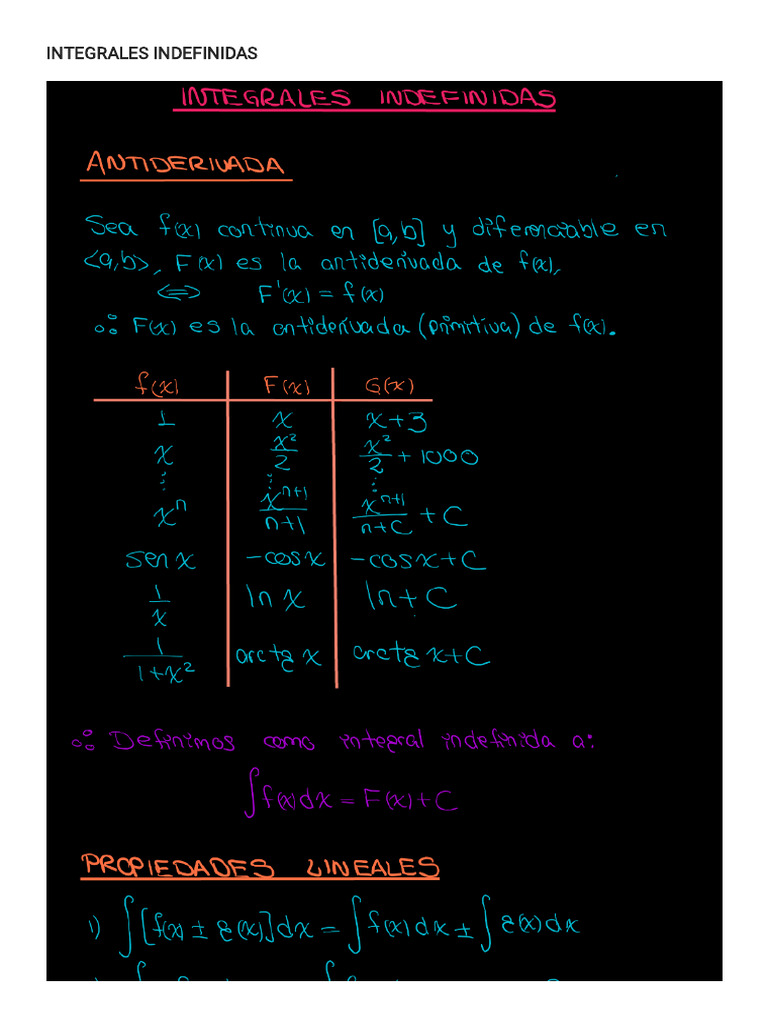 INTEGRALES INDEFINIDAS
INTEGRALES INDEFINIDAS
ANTIDERIVADA
Sea f(x) continua en [a,b] y diferenciable en
<a,b>, F(x) es la antiderivada de f(x),
<=> F'(x) = f(x)
∴ F(x) es la antiderivada (primitiva) de f(x).
f(x) F(x) G(x)
1 x x+3
x x²/2 x²/2 + 1000
⋮ ⋮ ⋮
xⁿ xⁿ⁺¹/n+1 xⁿ⁺¹/n+C + C
sen x -cosx -cosx+C
1/x ln x ln + C
1/1+x² arctg x arctg x+C
∴ Definimos como integral indefinida a:
∫f(x)dx = F(x)+C
PROPIEDADES LINEALES
1) ∫[f(x) ± g(x)]dx = ∫f(x)dx ± ∫g(x)dx